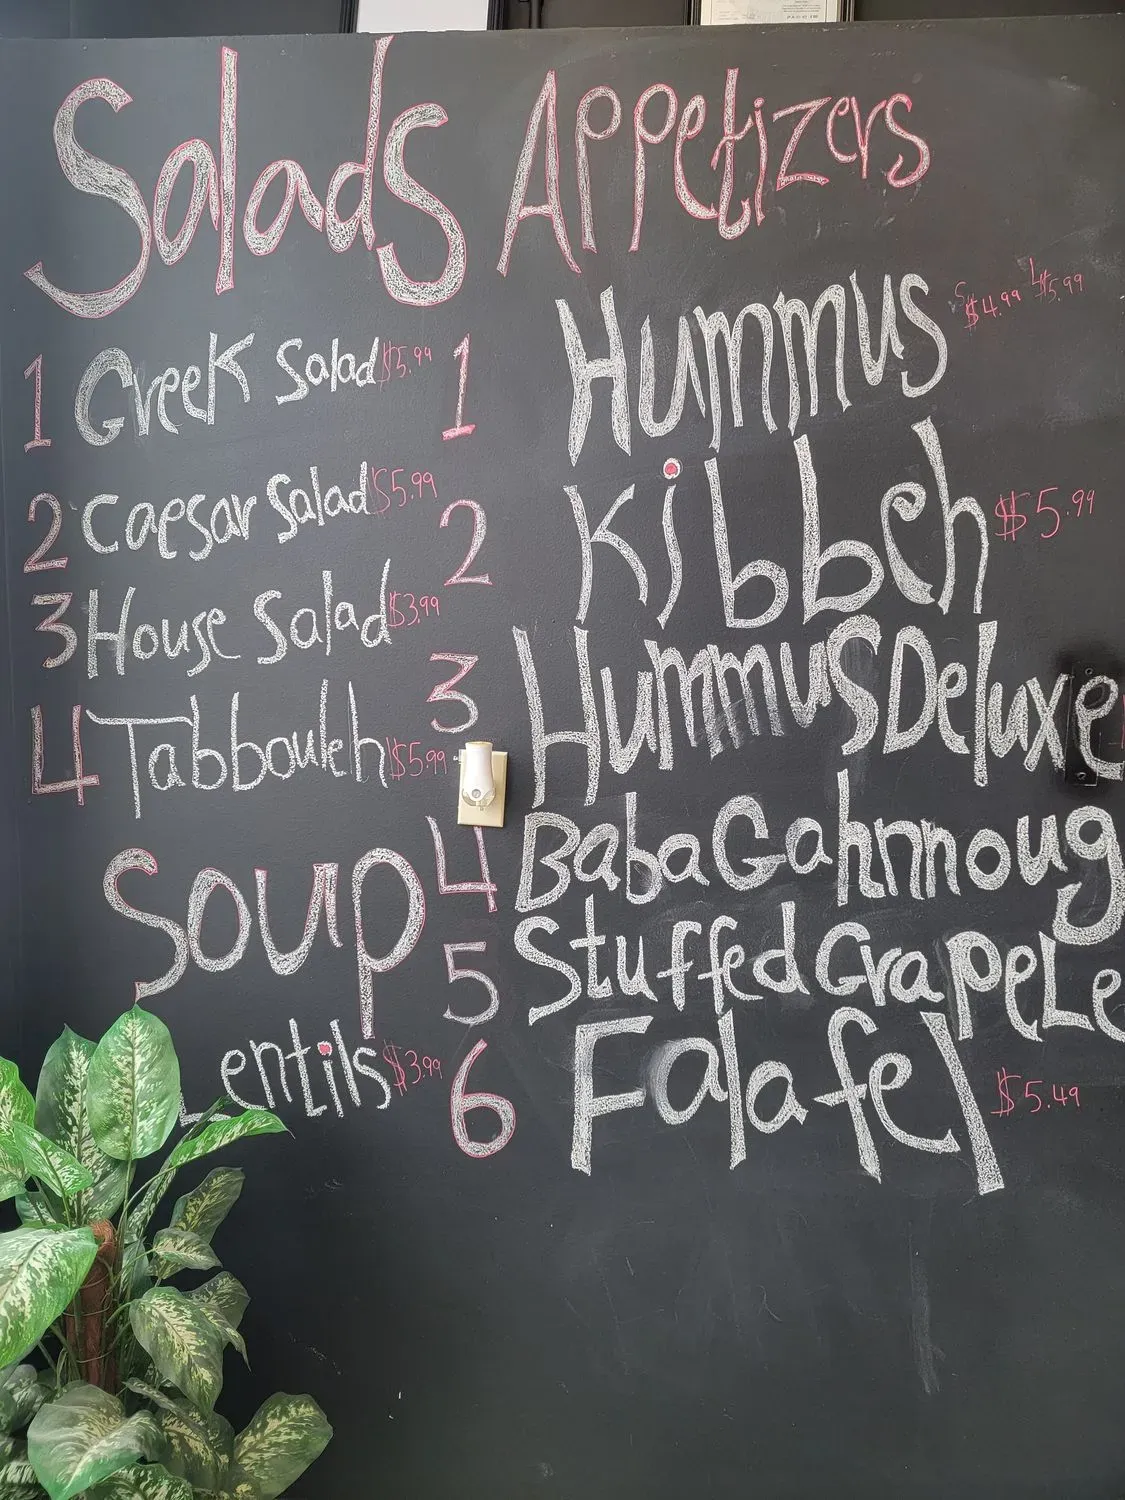 Salads
1 Greek Salad $5.99
2 Caesar Salad $5.99
3 House Salad $3.99
4 Tabbouleh $5.99
Soup
Lentils $3.99
Appetizers
1 Hummus S $4.99 L $5.99
2 Kibbeh $5.99
3 Hummus Deluxe
4 Baba Gahnnoug
5 Stuffed Grape Le
6 Falafel $5.49